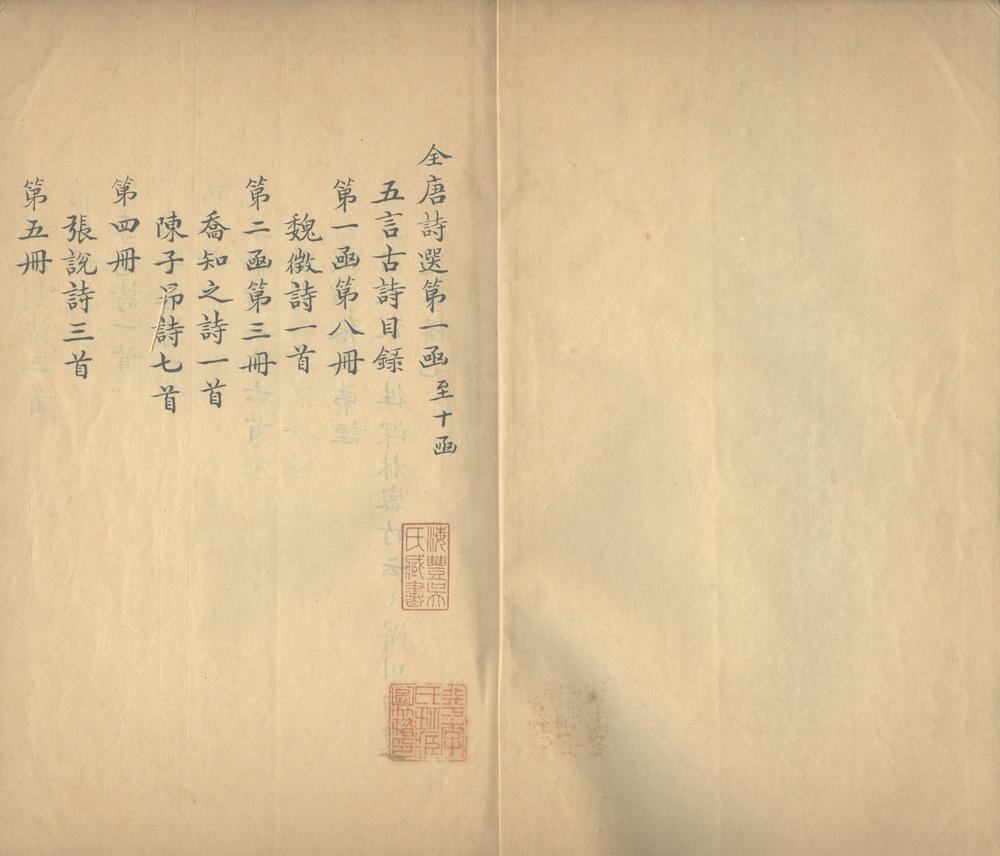 全唐詩選第一函至十函
五言古詩目録
第一函第八冊
魏徵詩一首
第二函第三冊
喬知之詩一首
陳子昂詩七首
第四冊
張說詩三首
第五冊
海豐吳
氏藏書